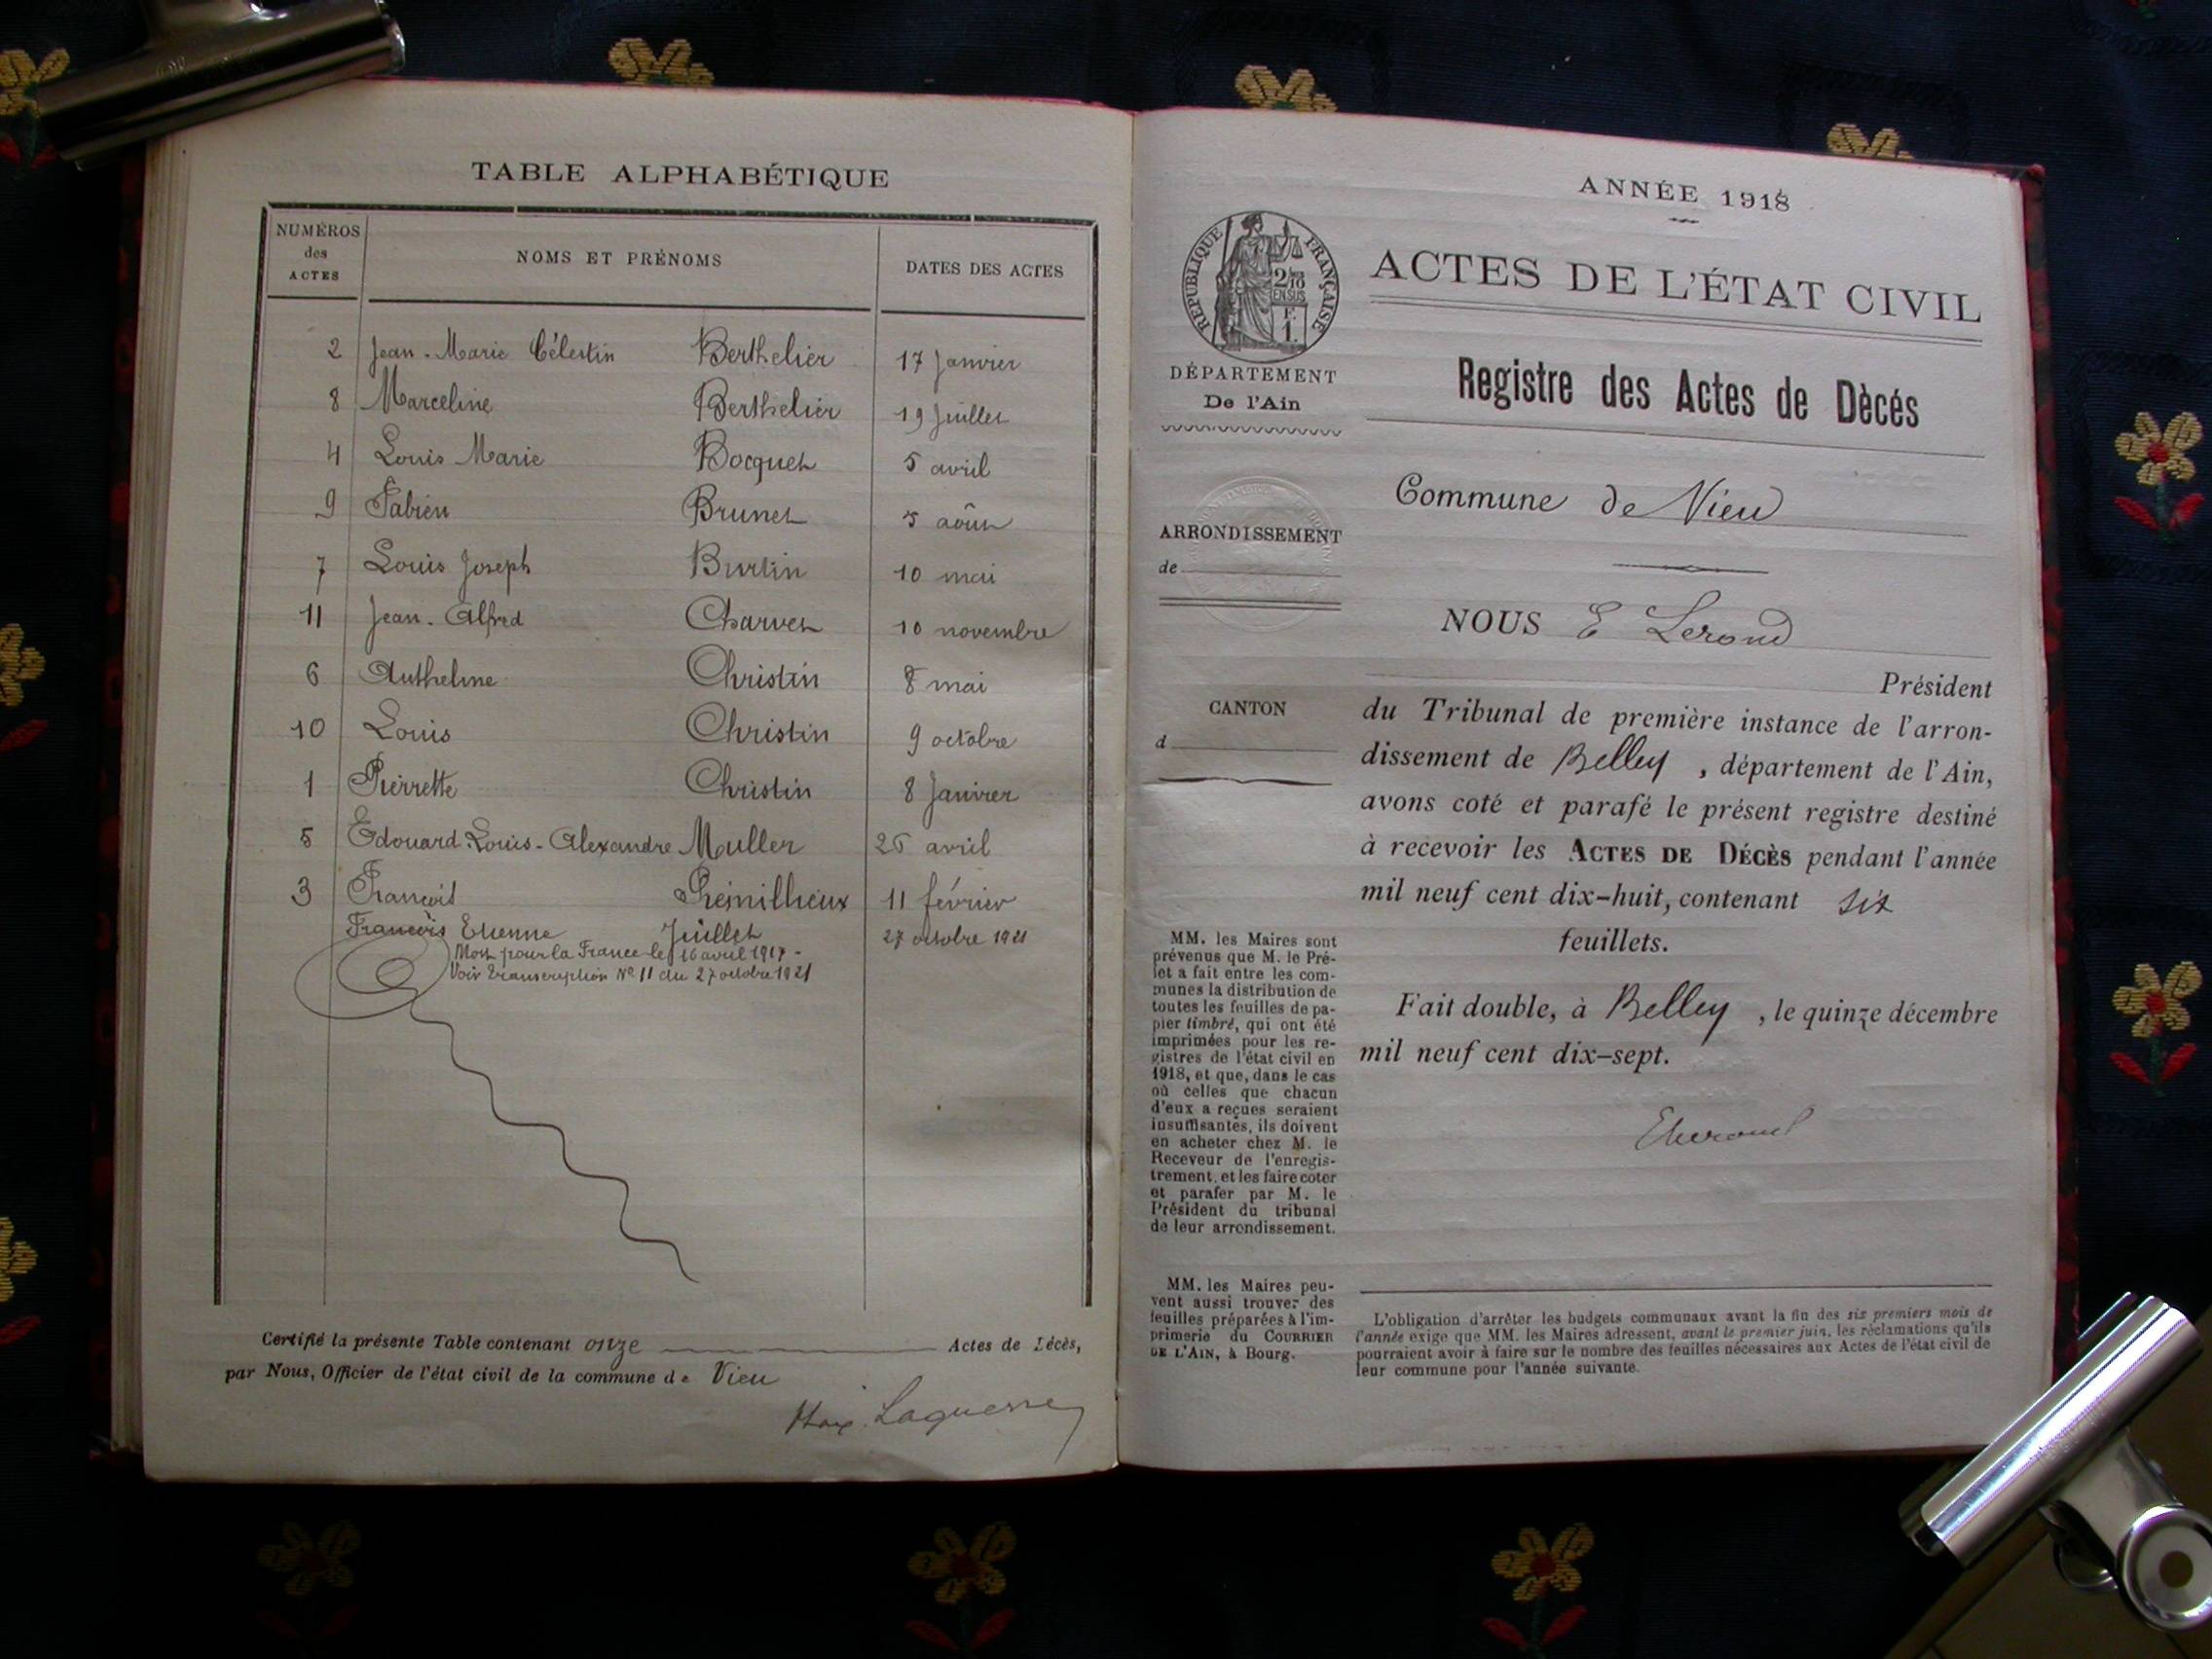 TABLE ALPHABÉTIQUE
NUMÉROS des ACTES NOMS ET PRÉNOMS DATES DES ACTES
2 Jean-Marie Célestin Berthelier 17 Janvier
8 Marceline Berthelier 19 Juillet
4 Louis Marie Bocquet 5 avril
9 Fabien Brunet 5 août
7 Louis Joseph Burtin 10 mai
11 Jean-Alfred Charvet 10 novembre
6 Antheline Christin 8 mai
10 Louis Christin 9 octobre
1 Pierrette Christin 8 Janvier
5 Edouard-Louis-Alexandre Muller 26 avril
3 François 11 février
François Etienne Juillet 27 octobre 1921
Mort pour la France le 16 avril 1917 -
Voir transcription No 11 du 27 octobre 1921
Certifié la présente Table contenant onze Actes de Décès,
par Nous, Officier de l'état civil de la commune de Vieu
Laguerre
ANNÉE 1918
RÉPUBLIQUE FRANÇAISE
2/10
EN SUS
F.
1.
ACTES DE L'ÉTAT CIVIL
DÉPARTEMENT
De l'Ain
Registre des Actes de Dècés
Commune de Vieu
ARRONDISSEMENT
de
NOUS E Lerond
Président
CANTON
d
du Tribunal de première instance de l'arron-
dissement de Belley, département de l'Ain,
avons coté et parafé le présent registre destiné
à recevoir les ACTES DE DÉCÈS pendant l'année
mil neuf cent dix-huit, contenant six
feuillets.
Fait double, à Belley, le quinze décembre
mil neuf cent dix-sept.
ELerond
MM. les Maires sont
prévenus que M. le Pré-
fet a fait entre les com-
munes la distribution de
toutes les feuilles de pa-
pier timbré, qui ont été
imprimées pour les re-
gistres de l'état civil en
1918, et que, dans le cas
où celles que chacun
d'eux a reçues seraient
insuffisantes, ils doivent
en acheter chez M. le
Receveur de l'enregis-
trement, et les faire coter
et parafer par M. le
Président du tribunal
de leur arrondissement.
MM. les Maires peu-
vent aussi trouver des
feuilles préparées à l'im-
primerie du COURRIER
DE L'AIN, à Bourg.
L'obligation d'arrêter les budgets communaux avant la fin des six premiers mois de
l'année exige que MM. les Maires adressent, avant le premier juin, les réclamations qu'ils
pourraient avoir à faire sur le nombre des feuilles nécessaires aux Actes de l'état civil de
leur commune pour l'année suivante.